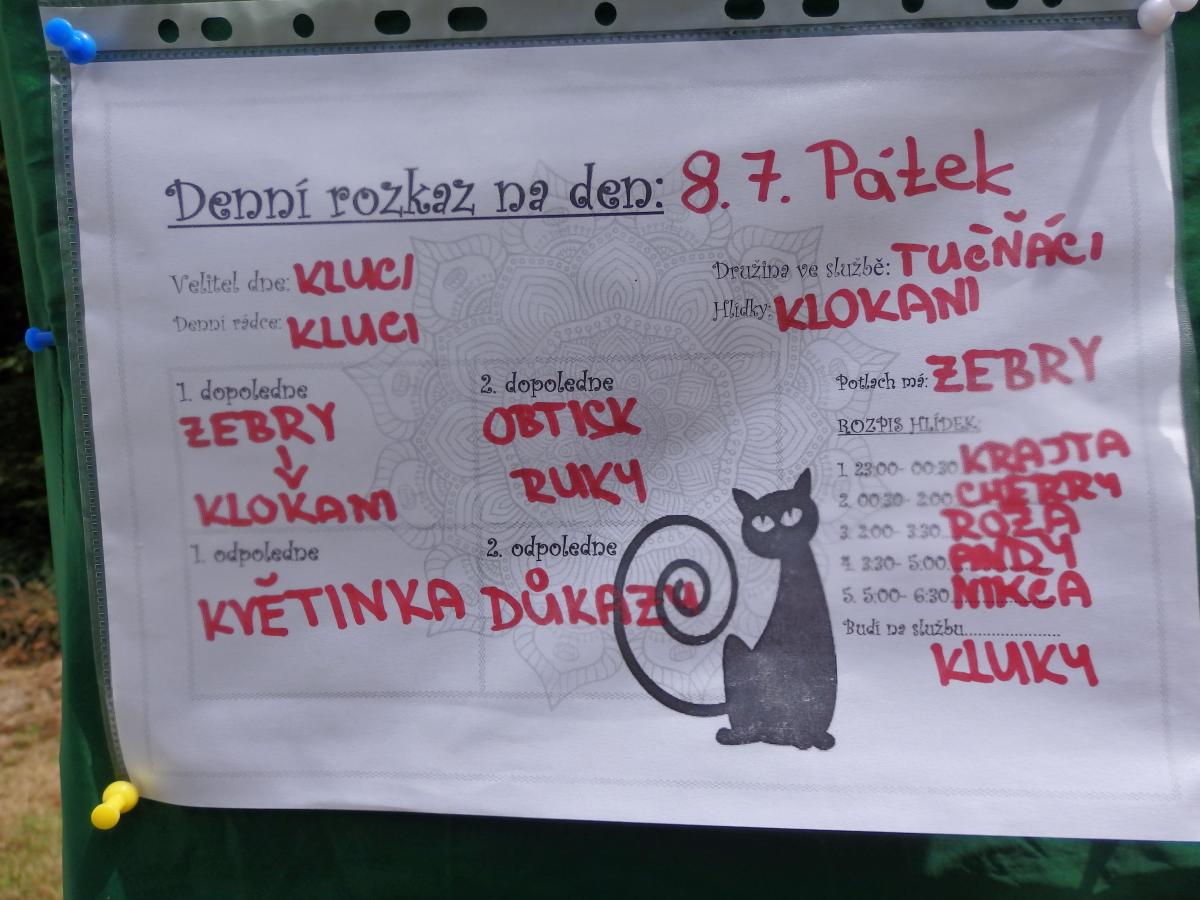 Denní rozkaz na den: 8.7. Pátek
Velitel dne: KLUCI
Denní rádce: KLUCI
Družina ve službě: TUČŇÁCI
Hlídky: KLOKANI
1. dopoledne
ZEBRY
↓
KLOKANI
2. dopoledne
OBTISK
RUKY
1. odpoledne
KVĚTINKA
2. odpoledne
DŮKAZY
Potlach má: ZEBRY
ROZPIS HLÍDEK:
1. 23:00- 00:30 KRAJTA
2. 00:30- 2:00 CHERRY
3. 2:00- 3:30 ROZA
4. 3:30- 5:00 ANDY
5. 5:00- 6:30 NIKČA
Budí na službu.....................
KLUKY